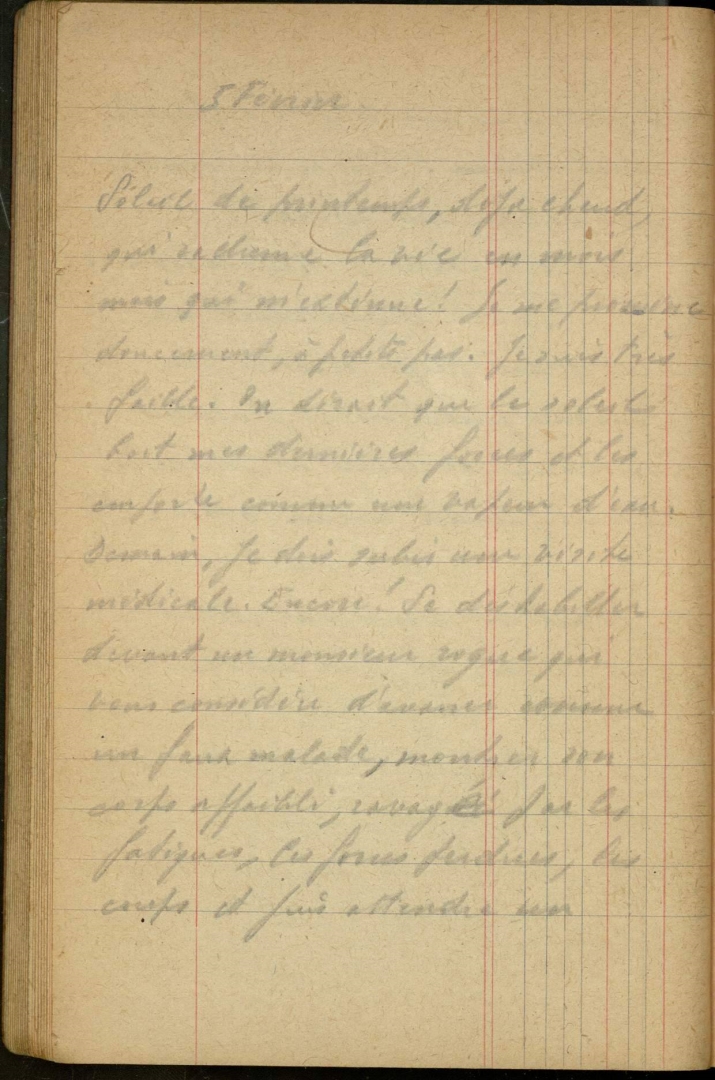 5 Février.
Soleil de printemps, déjà chaud,
qui ranime la vie en moi
mais qui m'exténue! Je me promène
doucement, à petits pas. Je suis très
faible. On dirait que le soleil
boit mes dernières forces et les
emporte comme une vapeur d'eau.
Demain, je dois subir une visite
médicale. Encore! Se déshabiller
devant un monsieur rogue qui
vous considère d'avance comme
un faux malade, montrer son
corps affaibli, ravagé par les
fatigues, les forces perdues, les
et puis attendre un